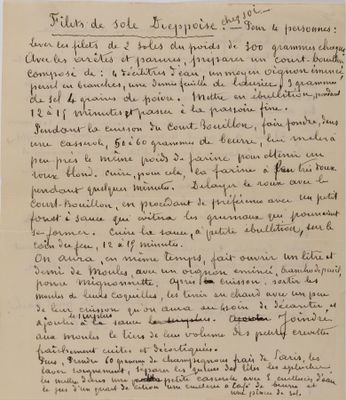 Filets de sole Dieppoise. chez soi.
Pour 4 personnes:
lever les filets de 2 soles du poids de 300 grammes chaque
Avec les arêtes et parures, préparer un court-Bouillon
composé de: 4 décilitres d'eau, un moyen oignon émincé,
persil en branches, une demie feuille de laurier, 3 grammes
de sel 4 grains de poivre. Mettre en ébullition, pendant
12 à 15 minutes et passer à la passoire fine.
Pendant la cuisson du Court Bouillon, faire fondre, dans
une casserole, 50 à 60 grammes de beurre, lui mélanger
peu près le même poids de farine pour obtenir un
roux blond. Cuire, pour cela, la farine à feu très doux
pendant quelques minutes. Délayer le roux avec le
Court-Bouillon, en procédant de préférence avec un petit
fouet à sauce qui évitera les grumeaux qui pourraient
se former. Cuire la sauce, à petite ébullition, sur le
coin du feu, 12 à 15 minutes.
On aura, en même temps, fait ouvrir un litre et
demi de Moules, avec un oignon émincé, branches de persil,
poivre Mignonnette. Après cuisson, sortir les
moules de leurs coquilles, les tenir au chaud avec un peu
de leur cuisson qu'on aura eu soin de décanter et
ajouter le surplus à la sauce. Joindre
aux moules le tiers de leur volume des petites crevettes
fraîchement cuites et décortiquées.
Puis, Prendre 60 grammes de champignons frais de Paris, les
laver soigneusement, séparer les queues des têtes les éplucher
les mettre dans une petite casserole avec 3 cuillères d'eau
le jus d'un quart de citron une cuillère à café de beurre et
une pincée de sel.